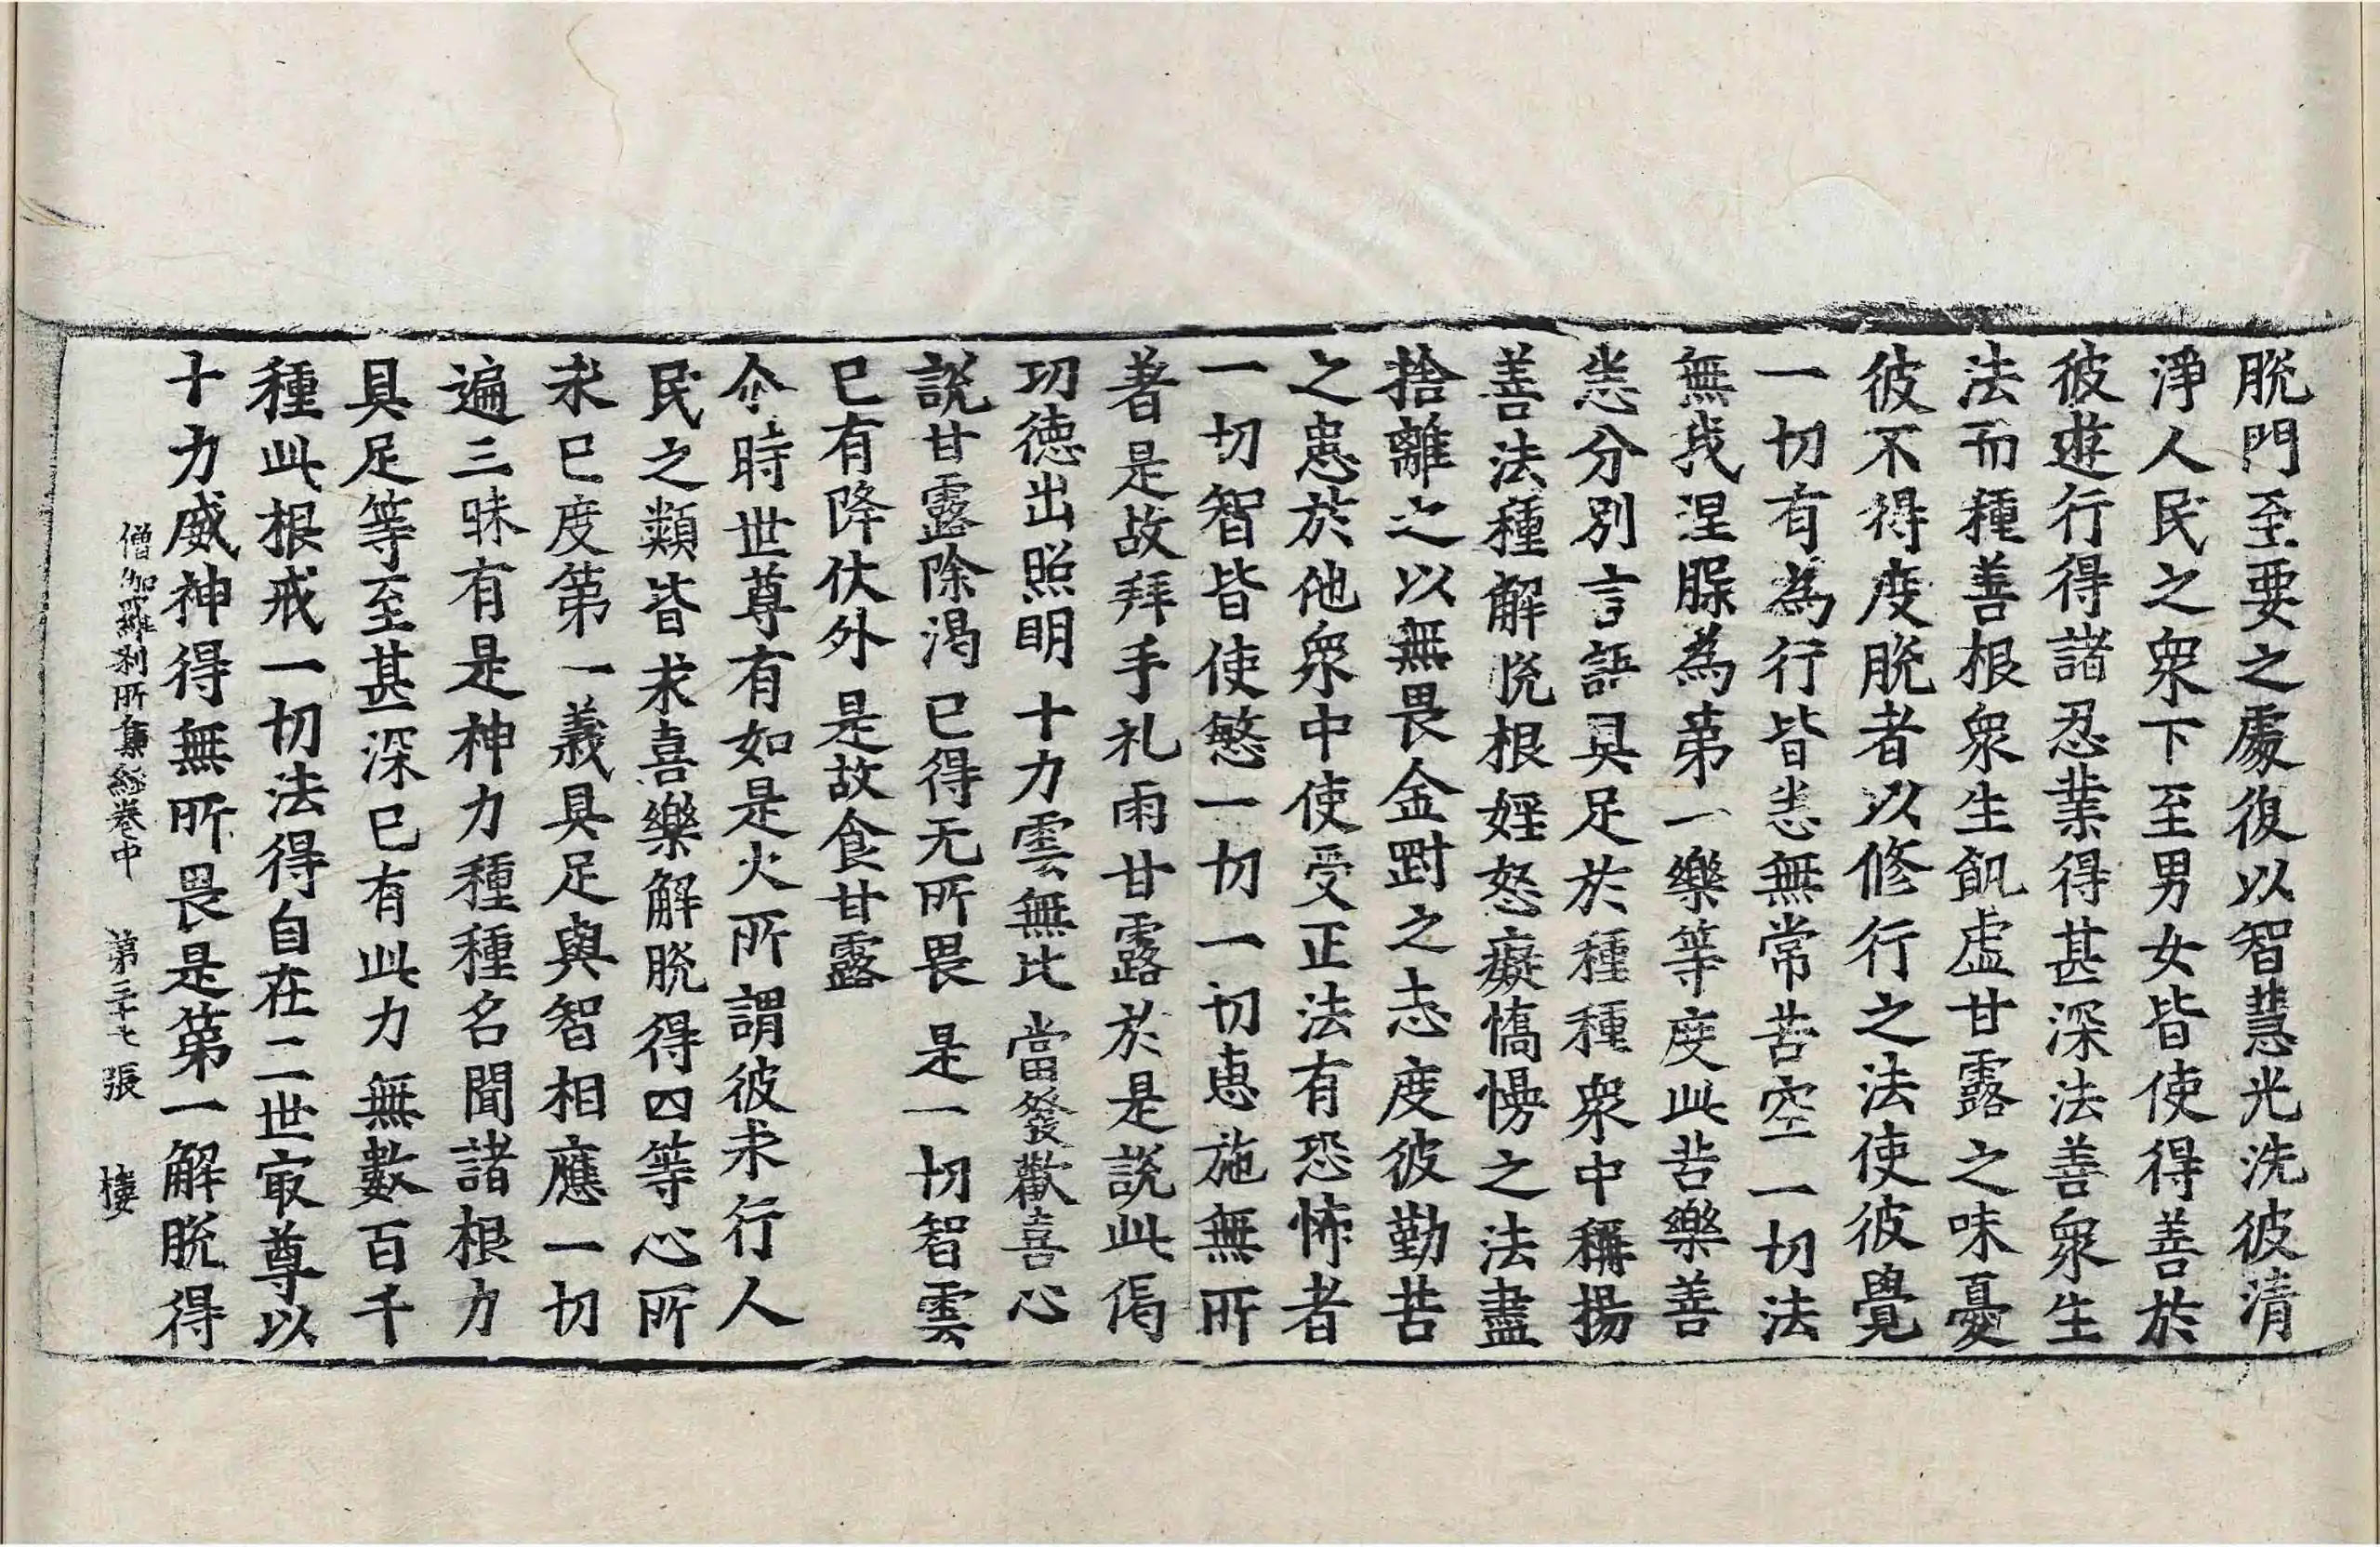 脫門至要之處復以智慧光洗彼清
淨人民之衆下至男女皆使得善於
彼遊行得諸忍業得甚深法善衆生
法而種善根衆生飢虛甘露之味憂
彼不得度脫者以修行之法使彼覺
一切有為行皆悉無常苦空一切法
無我涅槃為第一樂等度此苦樂善
悉分別言語具足於種種衆中稱揚
善法種解脫根婬怒癡憍慢之法盡
捨離之以無畏金剛之志度彼勤苦
之患於他衆中使受正法有恐怖者
一切智皆使慜一切一切惠施無所
著是故拜手礼雨甘露於是說此偈
功德出照明 十力雲無比 當發歡喜心
說甘露除渴 已得无所畏 是一切智雲
已有降伏外 是故食甘露
尒時世尊有如是火所謂彼未行人
民之類皆求喜樂解脫得四等心所
求已度第一義具足與智相應一切
遍三昧有是神力種種名聞諸根力
具足等至甚深已有此力無數百千
種此根戒一切法得自在二世㝡尊以
十力威神得無所畏是第一解脫得
僧伽羅刹所集經卷中 第三十七張 棲